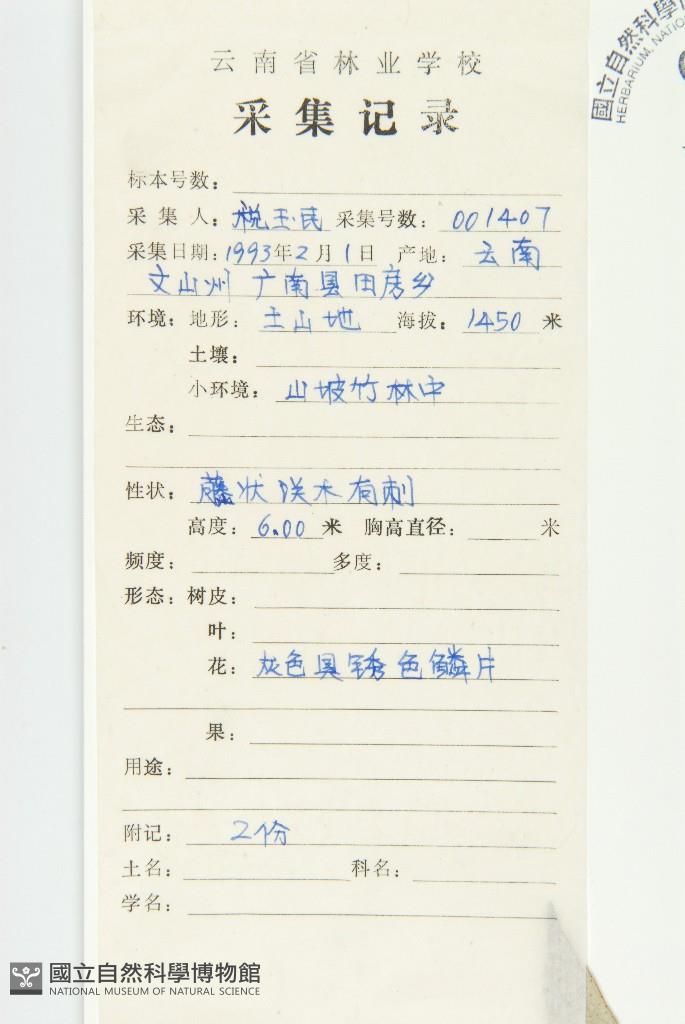 云南省林业学校
采集记录
标本号数:
采集人: 税玉民 采集号数: 001407
采集日期: 1993年2月1日 产地: 云南
文山州 广南县田房乡
环境: 地形: 土山地 海拔: 1450 米
土壤:
小环境: 山坡竹林中
生态:
性状: 藤状 木有刺
高度: 6.00 米 胸高直径: 米
频度: 多度:
形态: 树皮:
叶:
花: 灰色具锈色鳞片
果:
用途:
附记: 2份
土名: 科名:
学名:
國立自然科學
HERBARIUM, NATIO
國立自然科學博物館
NATIONAL MUSEUM OF NATURAL SCIENCE